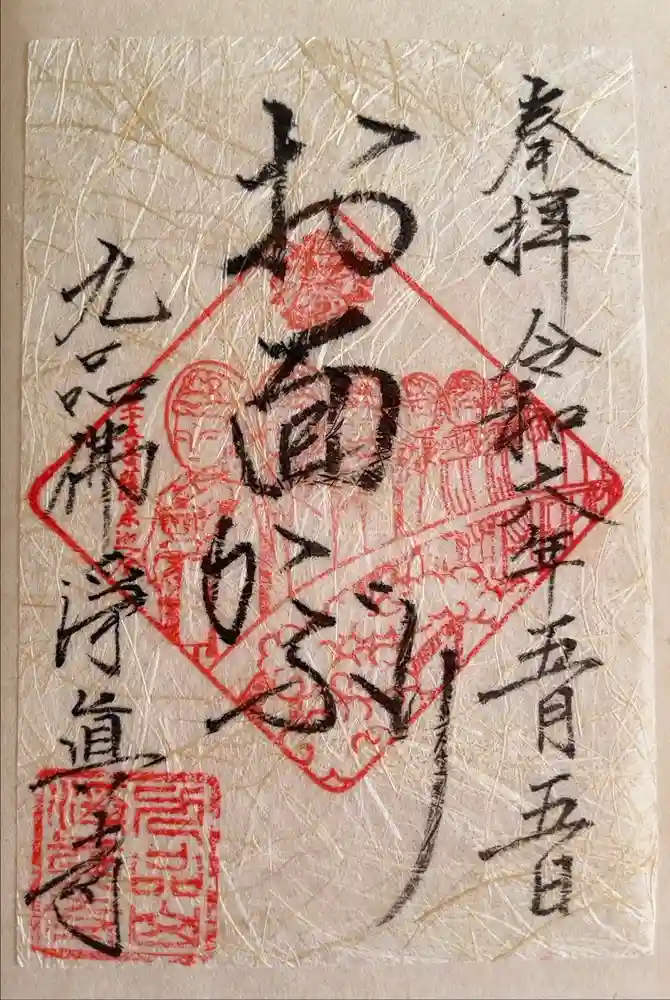 奉拝 令和六年五月五日
お面かぶり
九品佛 浄眞寺